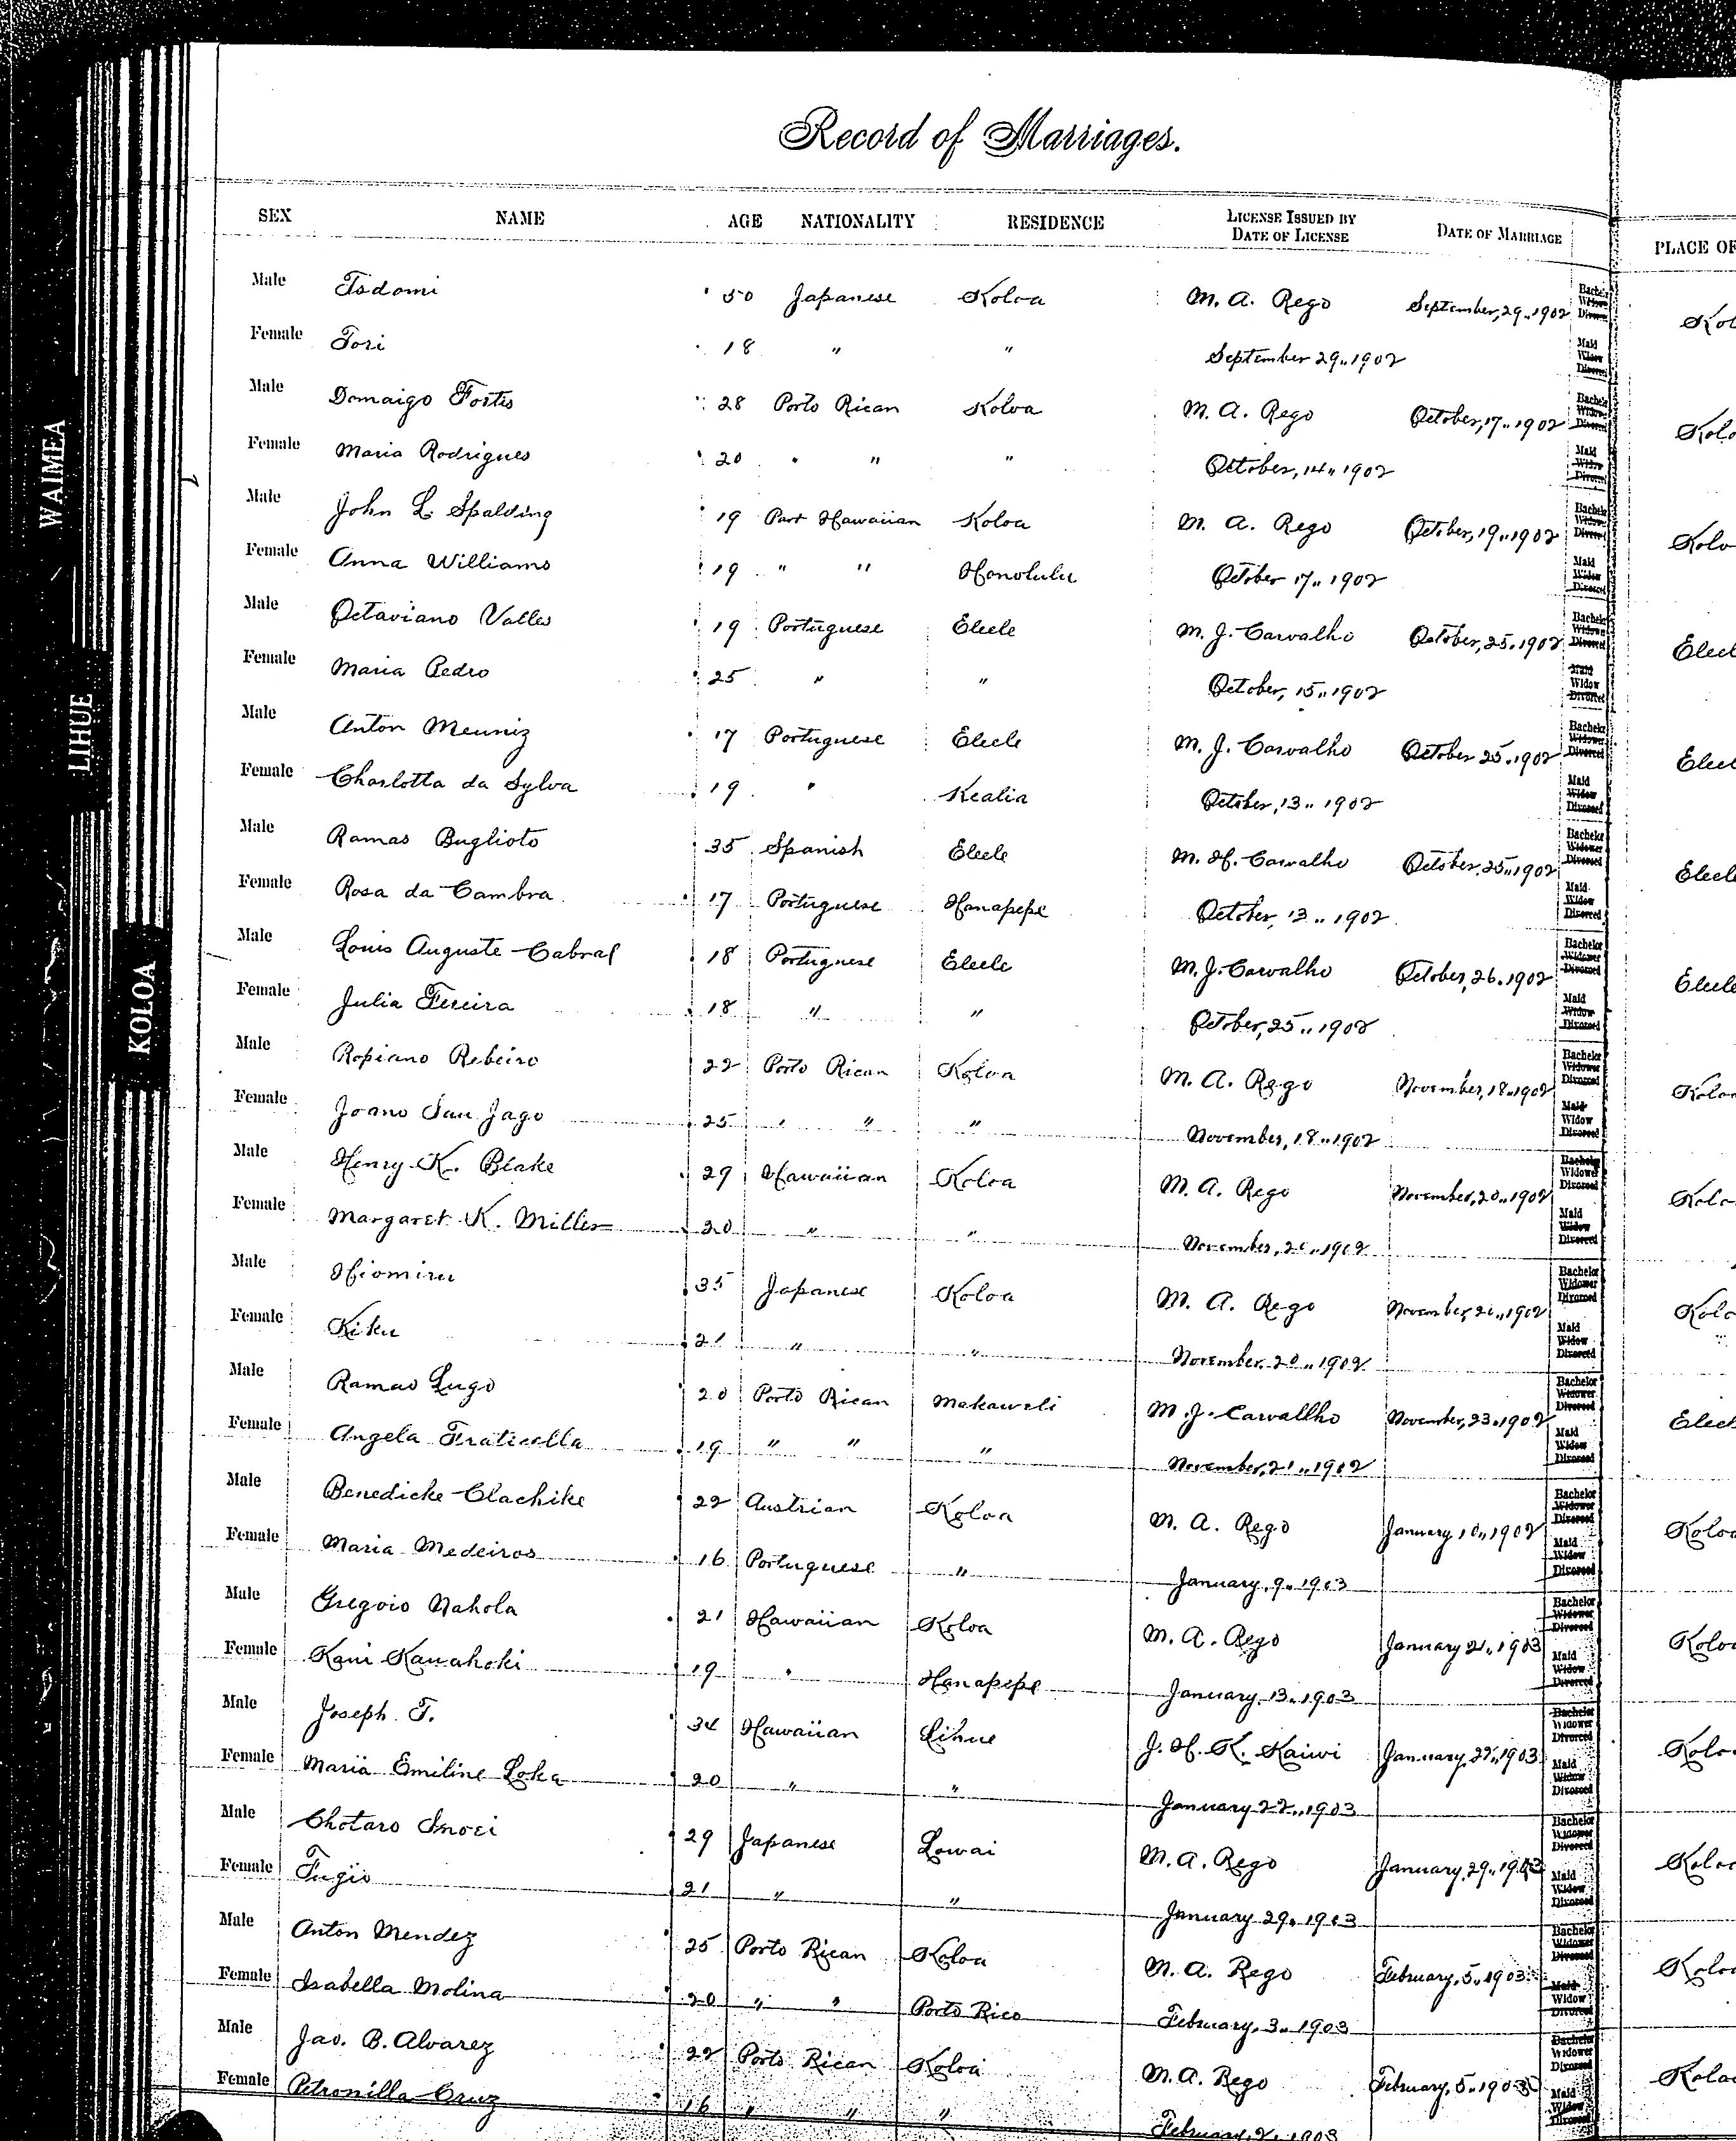 Record of Marriages.
SEX NAME AGE NATIONALITY RESIDENCE LICENSE ISSUED BY DATE OF LICENSE DATE OF MARRIAGE PLACE OF
Male Tsdomi 50 Japanese Koloa M. A. Rego September, 29, 1902 Bachelor Widower Divorced
Female Tori 18 " " September 29, 1902 Maid Widow Divorced
Male Domaigo Fortis 28 Porto Rican Koloa M. A. Rego October, 17, 1902 Bachelor Widower Divorced
Female Maria Rodrigues 20 " " " October, 14, 1902 Maid Widow Divorced
Male John L. Spalding 19 Part Hawaiian Koloa M. A. Rego October, 19, 1902 Bachelor Widower Divorced
Female Anna Williams 19 " " Honolulu October 17, 1902 Maid Widow Divorced
Male Octaviano Valles 19 Portuguese Eleele M. J. Carvalho October, 25, 1902 Bachelor Widower Divorced
Female Maria Pedro 25 " " October, 15, 1902 Maid Widow Divorced
Male Anton Meuniz 17 Portuguese Eleele M. J. Carvalho October 25, 1902 Bachelor Widower Divorced
Female Charlotta da Sylva 19 " Kealia October, 13, 1902 Maid Widow Divorced
Male Ramas Buglioto 35 Spanish Eleele M. H. Carvalho October, 25, 1902 Bachelor Widower Divorced
Female Rosa da Cambra 17 Portuguese Hanapepe October, 13, 1902 Maid Widow Divorced
Male Louis Auguste Cabral 18 Portuguese Eleele M. J. Carvalho October, 26, 1902 Bachelor Widower Divorced
Female Julia Fereira 18 " " October, 25, 1902 Maid Widow Divorced
Male Ropiano Rebeiro 22 Porto Rican Koloa M. A. Rego November, 18, 1902 Bachelor Widower Divorced
Female Joano San Jago 25 " " " November, 18, 1902 Maid Widow Divorced
Male Henry K. Blake 29 Hawaiian Koloa M. A. Rego November, 20, 1902 Bachelor Widower Divorced
Female Margaret K. Miller 20 " " November, 20, 1902 Maid Widow Divorced
Male Hiomiru 35 Japanese Koloa M. A. Rego November, 1902 Bachelor Widower Divorced
Female Kiku 21 " " November, 20, 1902 Maid Widow Divorced
Male Ramao Lugo 20 Porto Rican Makaweli M. J. Carvallho November, 23, 1902 Bachelor Widower Divorced
Female Angela Fraticella 19 " " " November, 21, 1902 Maid Widow Divorced
Male Benedicke Clachike 22 Austrian Koloa M. A. Rego January 10, 1902 Bachelor Widower Divorced
Female Maria Medeiros 16 Portuguese " January, 9, 1903 Maid Widow Divorced
Male Gregoio Nahola 21 Hawaiian Koloa M. A. Rego January 21, 1903 Bachelor Widower Divorced
Female Kani Kauahoki 19 " Hanapepe January, 13, 1903 Maid Widow Divorced
Male Joseph T. 34 Hawaiian Lihue J. H. K. Kaiwi January, 22, 1903 Bachelor Widower Divorced
Female Maria Emiline Loka 20 " " January 22, 1903 Maid Widow Divorced
Male Chotaro Inoci 29 Japanese Lawai M. A. Rego January, 29, 1903 Bachelor Widower Divorced
Female Fugio 21 " " January 29, 1903 Maid Widow Divorced
Male Anton Mendez 25 Porto Rican Koloa M. A. Rego February, 5, 1903 Bachelor Widower Divorced
Female Isabella Molina 20 " " Porto Rico February, 3, 1903 Maid Widow Divorced
Male Jao. B. Alvarez 22 Porto Rican Koloa M. A. Rego February, 5, 1903 Bachelor Widower Divorced
Female Petronilla Cruz 16 " " " February, 2, 1903 Maid Widow Divorced
WAIMEA
LIHUE
KOLOA